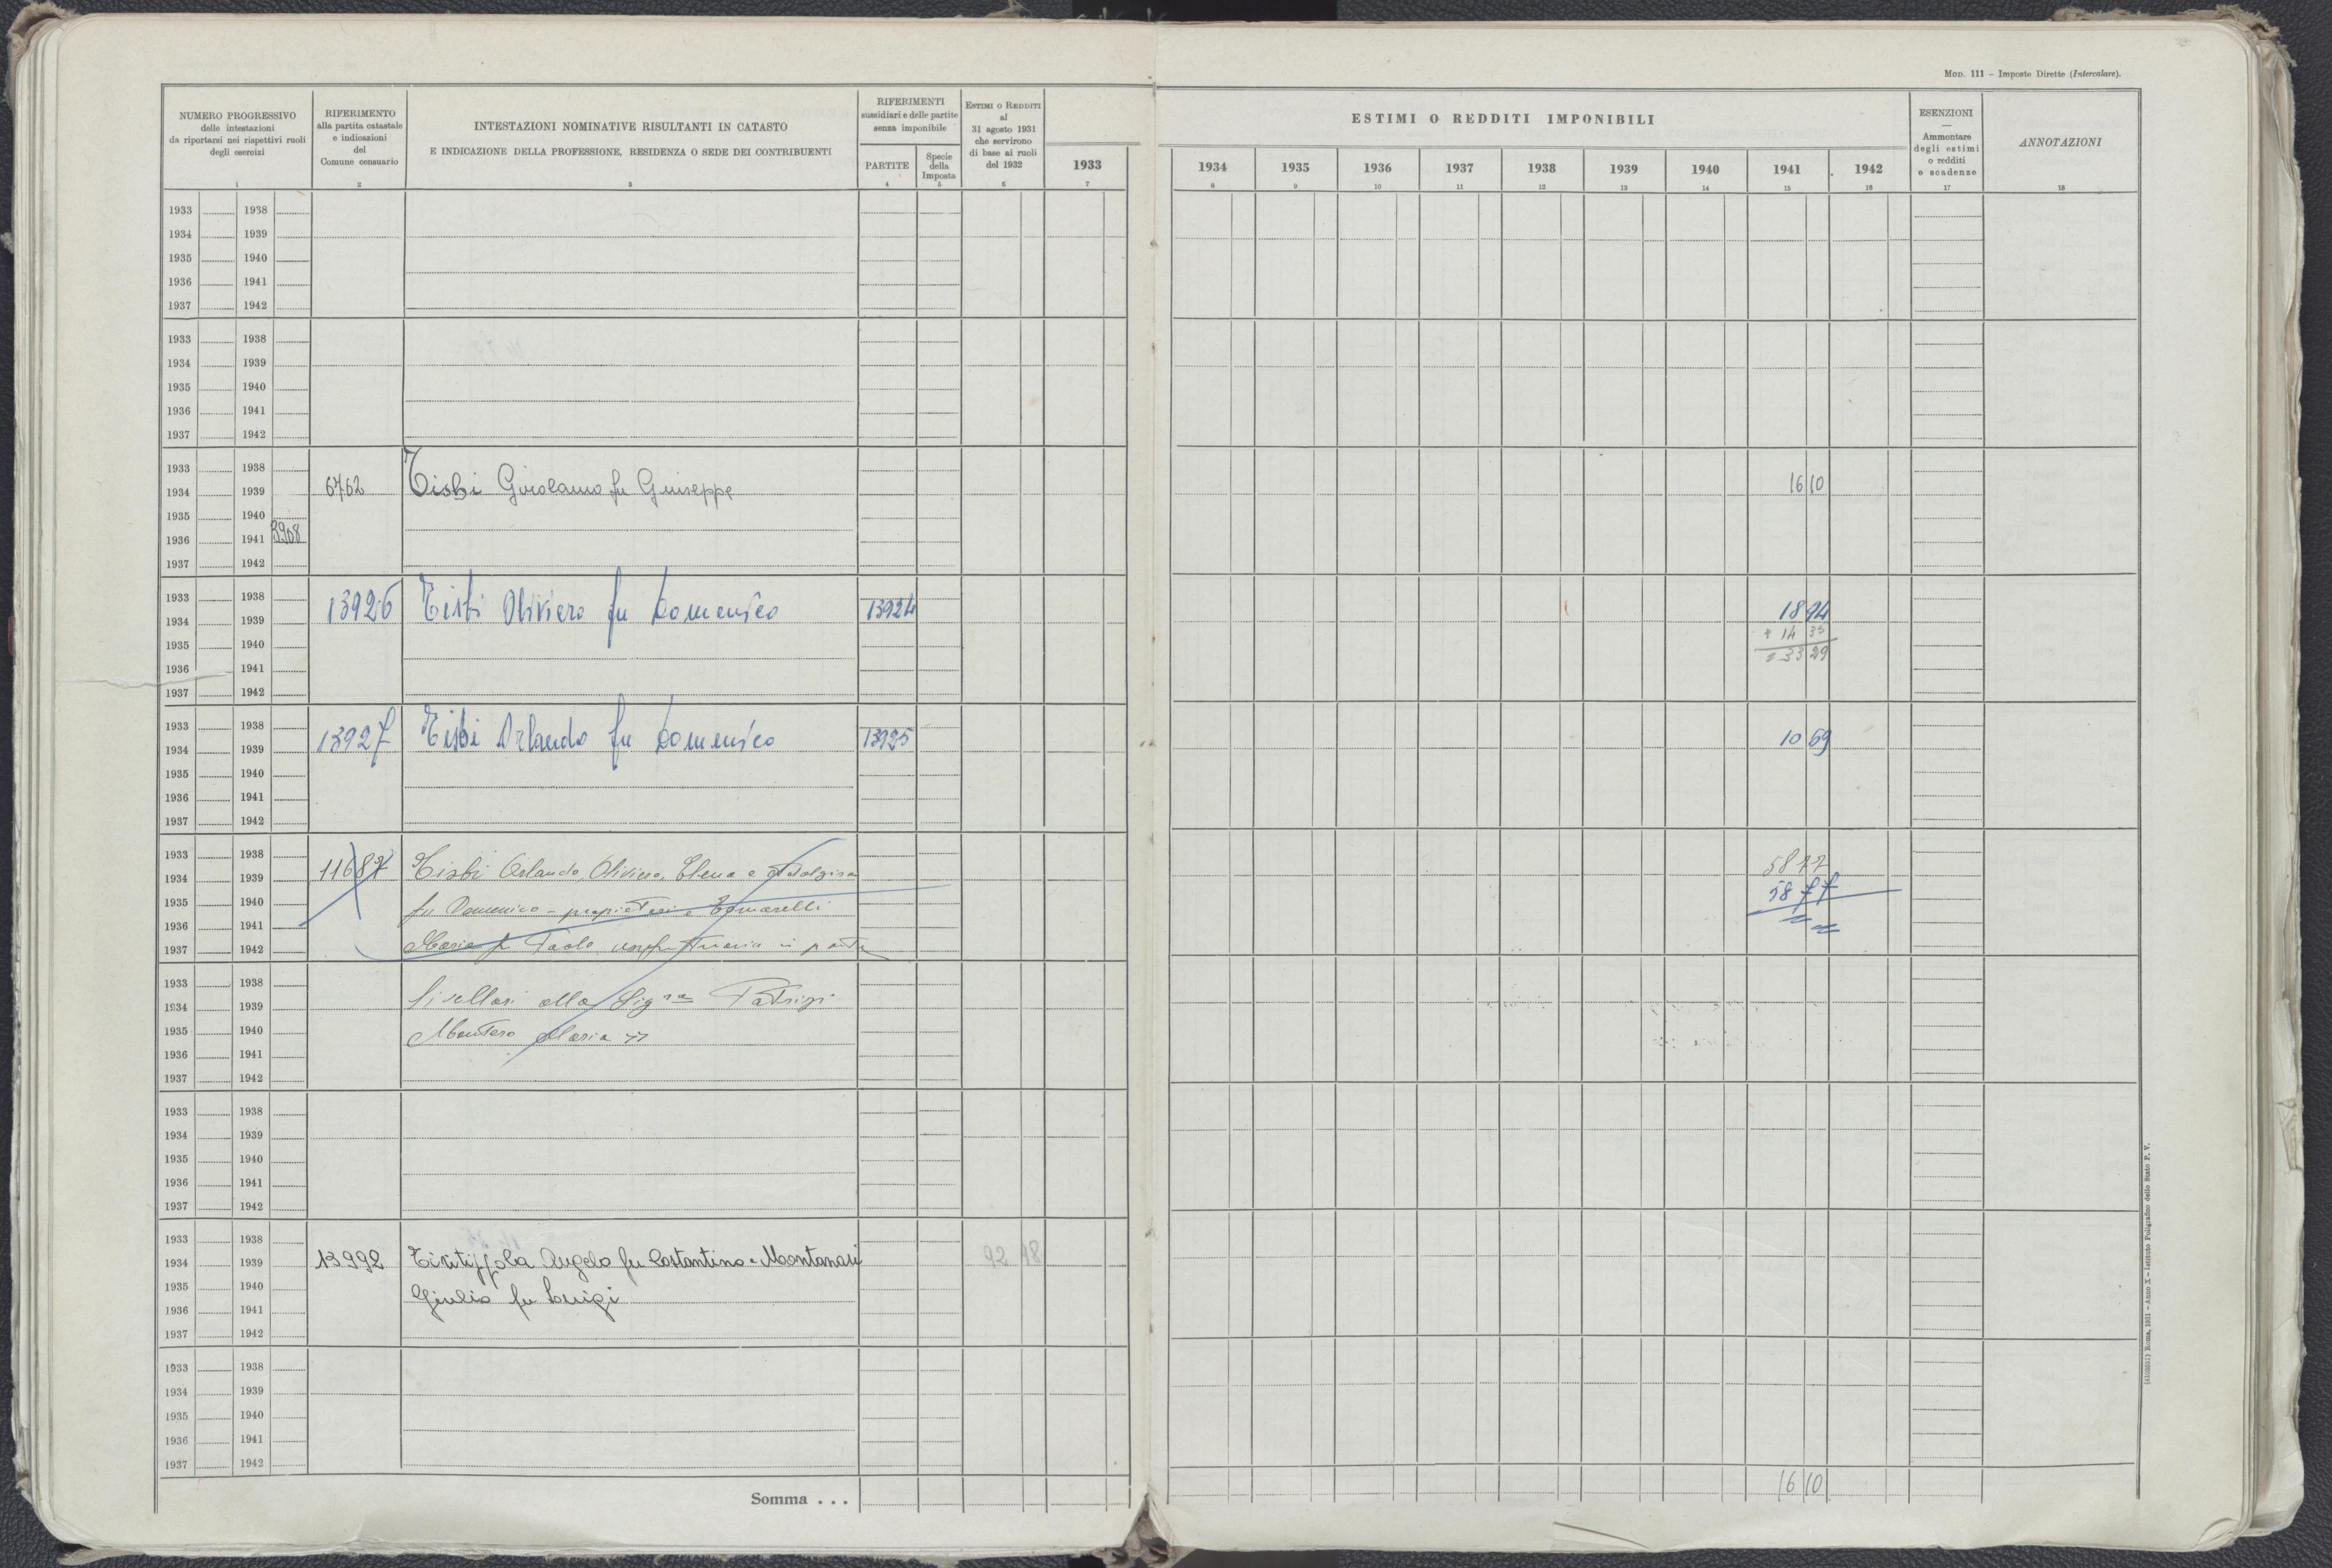 Mod. 111 – Imposte Dirette (Intercalare).
NUMERO PROGRESSIVO
delle intestazioni
da riportarsi nei rispettivi ruoli
degli esercizi
1
RIFERIMENTO
alla partita catastale
e indicazioni
del
Comune censuario
2
INTESTAZIONI NOMINATIVE RISULTANTI IN CATASTO
E INDICAZIONE DELLA PROFESSIONE, RESIDENZA O SEDE DEI CONTRIBUENTI
3
RIFERIMENTI
sussidiari e delle partite
senza imponibile
PARTITE
4
Specie
della
Imposta
5
Estimi o Redditi
al
31 agosto 1931
che servirono
di base ai ruoli
del 1932
6
1933
7
ESTIMI O REDDITI IMPONIBILI
1934 1935 1936 1937 1938 1939 1940 1941 1942
8 9 10 11 12 13 14 15 16
ESENZIONI
—
Ammontare
degli estimi
o redditi
e scadenze
17
ANNOTAZIONI
18
1933 1938
1934 1939
1935 1940
1936 1941
1937 1942
1933 1938
1934 1939
1935 1940
1936 1941
1937 1942
1933 1938
1934 1939 6762 Tisbi Girolamo fu Giuseppe 16 10
1935 1940
1936 1941 3908
1937 1942
1933 1938
1934 1939 13926 Tisbi Oliviero fu Domenico 13924 18 94
1935 1940 + 14 35
1936 1941 = 33 29
1937 1942
1933 1938
1934 1939 13927 Tisbi Orlando fu Domenico 13925 10 69
1935 1940
1936 1941
1937 1942
1933 1938
1934 1939 11687 Tisbi Orlando, Oliviero, Elena e Adalgisa 58 77
1935 1940 58 77
1936 1941 fu Domenico - proprietari e
1937 1942 Maria fu Paolo usufruttuaria in parte
1933 1938
1934 1939 livellari alla Sig.ra Patrizi
1935 1940 Montoro Maria
1936 1941
1937 1942
1933 1938
1934 1939
1935 1940
1936 1941
1937 1942
1933 1938
1934 1939 13992 Angelo fu Costantino e Montanari 92 48
1935 1940 Giulio fu Luigi
1936 1941
1937 1942
1933 1938
1934 1939
1935 1940
1936 1941
1937 1942
Somma . . . 16 10
Roma, 1931 – Anno X – Istituto Poligrafico dello Stato P. V.